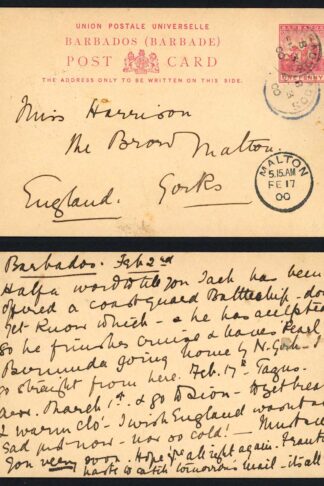 UNION POSTALE UNIVERSELLE
BARBADOS (BARBADE)
POST CARD
THE ADDRESS ONLY TO BE WRITTEN ON THIS SIDE.
BARBADOS
Miss Harrison
The Brow
Malton.
England. Yorks
MALTON
5.15 AM
FE 17
00
Barbados. Feb 2nd
Half a word to tell you Jack has been
offered a coastguard Battleship - don't
yet know which - & he has accepted
so he finishes cruise & leaves Pearl
Bermuda going home by
go straight from here. Feb. 17th - Tagus.
arr. March 1st. & go to Sion - to get
& warm clo' - I wish England
sad just now - nor so cold! -
you very soon. Hope all right again.
haste to catch tomorrow's mail - its all